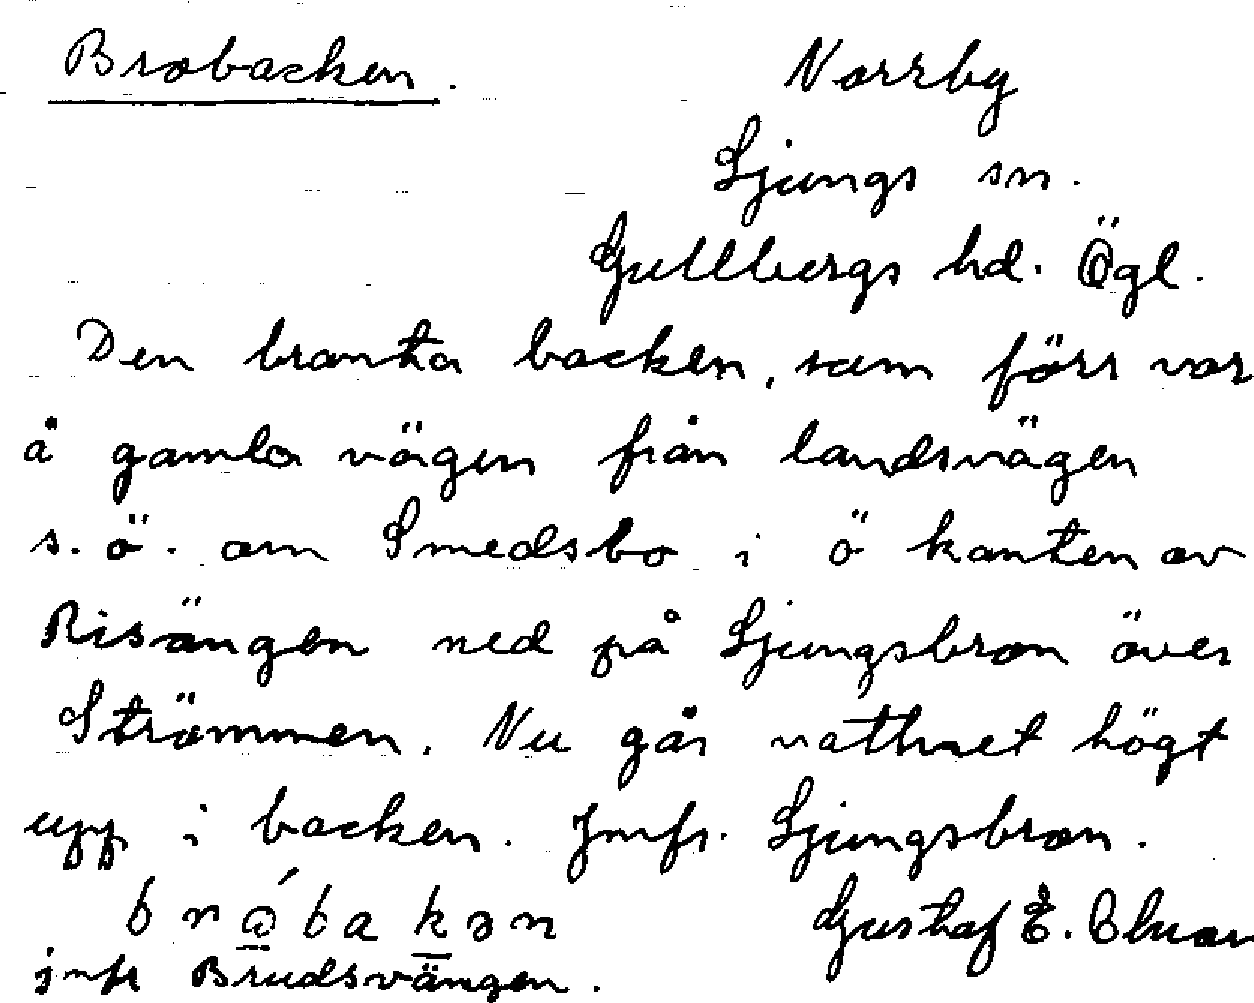 Brobacken. Norrby
Ljungs sn.
Gullbergs hd. Ögl.
Den branta backen, som förr var
å gamla vägen från landsvägen
s.ö. om Smedsbo i ö kanten av
Risängen ned på Ljungsbron över
Strömmen. Nu går vattnet högt
upp i backen. Jmfr. Ljungsbron.
Gustaf E.
jmfr Brudsvängen.